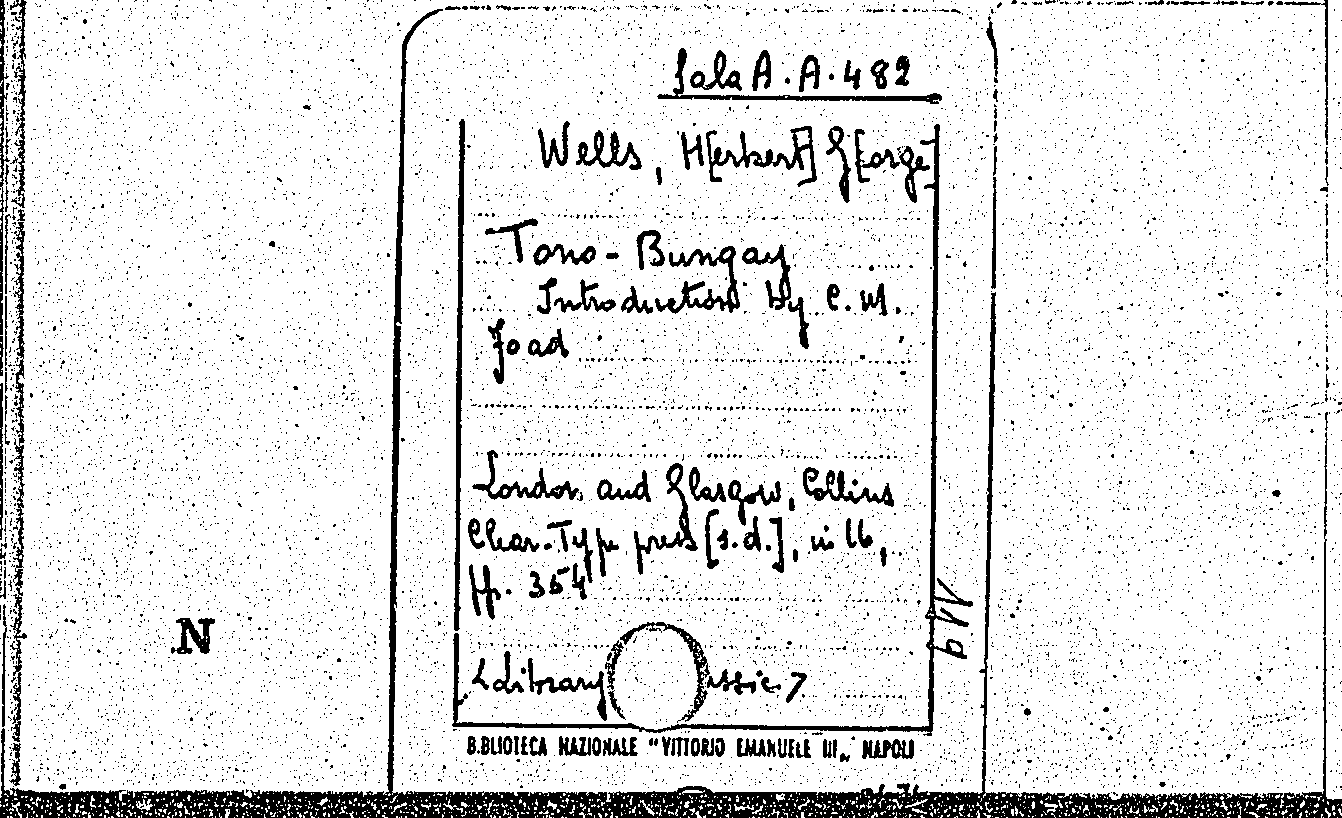 Sala A. A. 482
Wells, H[erbert] G[eorge]
Tono-Bungay
Introduction by C. M.
Joad
London and Glasgow, Collins
Clear-Type press [s.d.], in 16,
pp. 354
<Library ssic>
N
BIBLIOTECA NAZIONALE "VITTORIO EMANUELE III„ NAPOLI